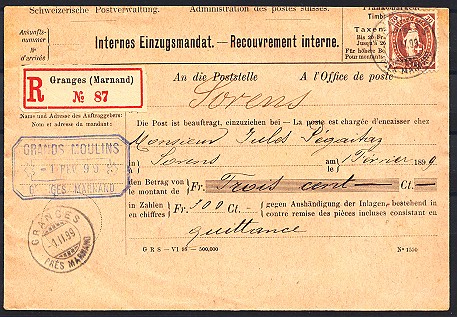 Schweizerische Postverwaltung. Administration des postes suisses.
Ankunfts-
nummer
N°
d'arrivée
Internes Einzugsmandat. — Recouvrement interne.
Timbr
Taxen
Bis 20 Fr.
R
Granges (Marnand)
№ 87
An die Poststelle A l'Office de poste
Sorens
Name und Adresse des Auftraggebers:
Nom et adresse du mandant:
Die Post ist beauftragt, einzuziehen bei — La poste est chargée d'encaisser chez
Monsieur Jules
in
à Sorens am
le 1 Février 1899
GRANDS MOULINS
GRANGES MARNAND
den Betrag von
le montant de Fr. Trois cent Ct.
in Zahlen
en chiffres Fr. 300 Ct. — gegen Aushändigung der Inlagen, bestehend in
contre remise des pièces incluses consistant en
quittance
GRANGES
-1.II.99
PRÈS MARNAND
G R S — VI 98 — 500,000 N° 1530